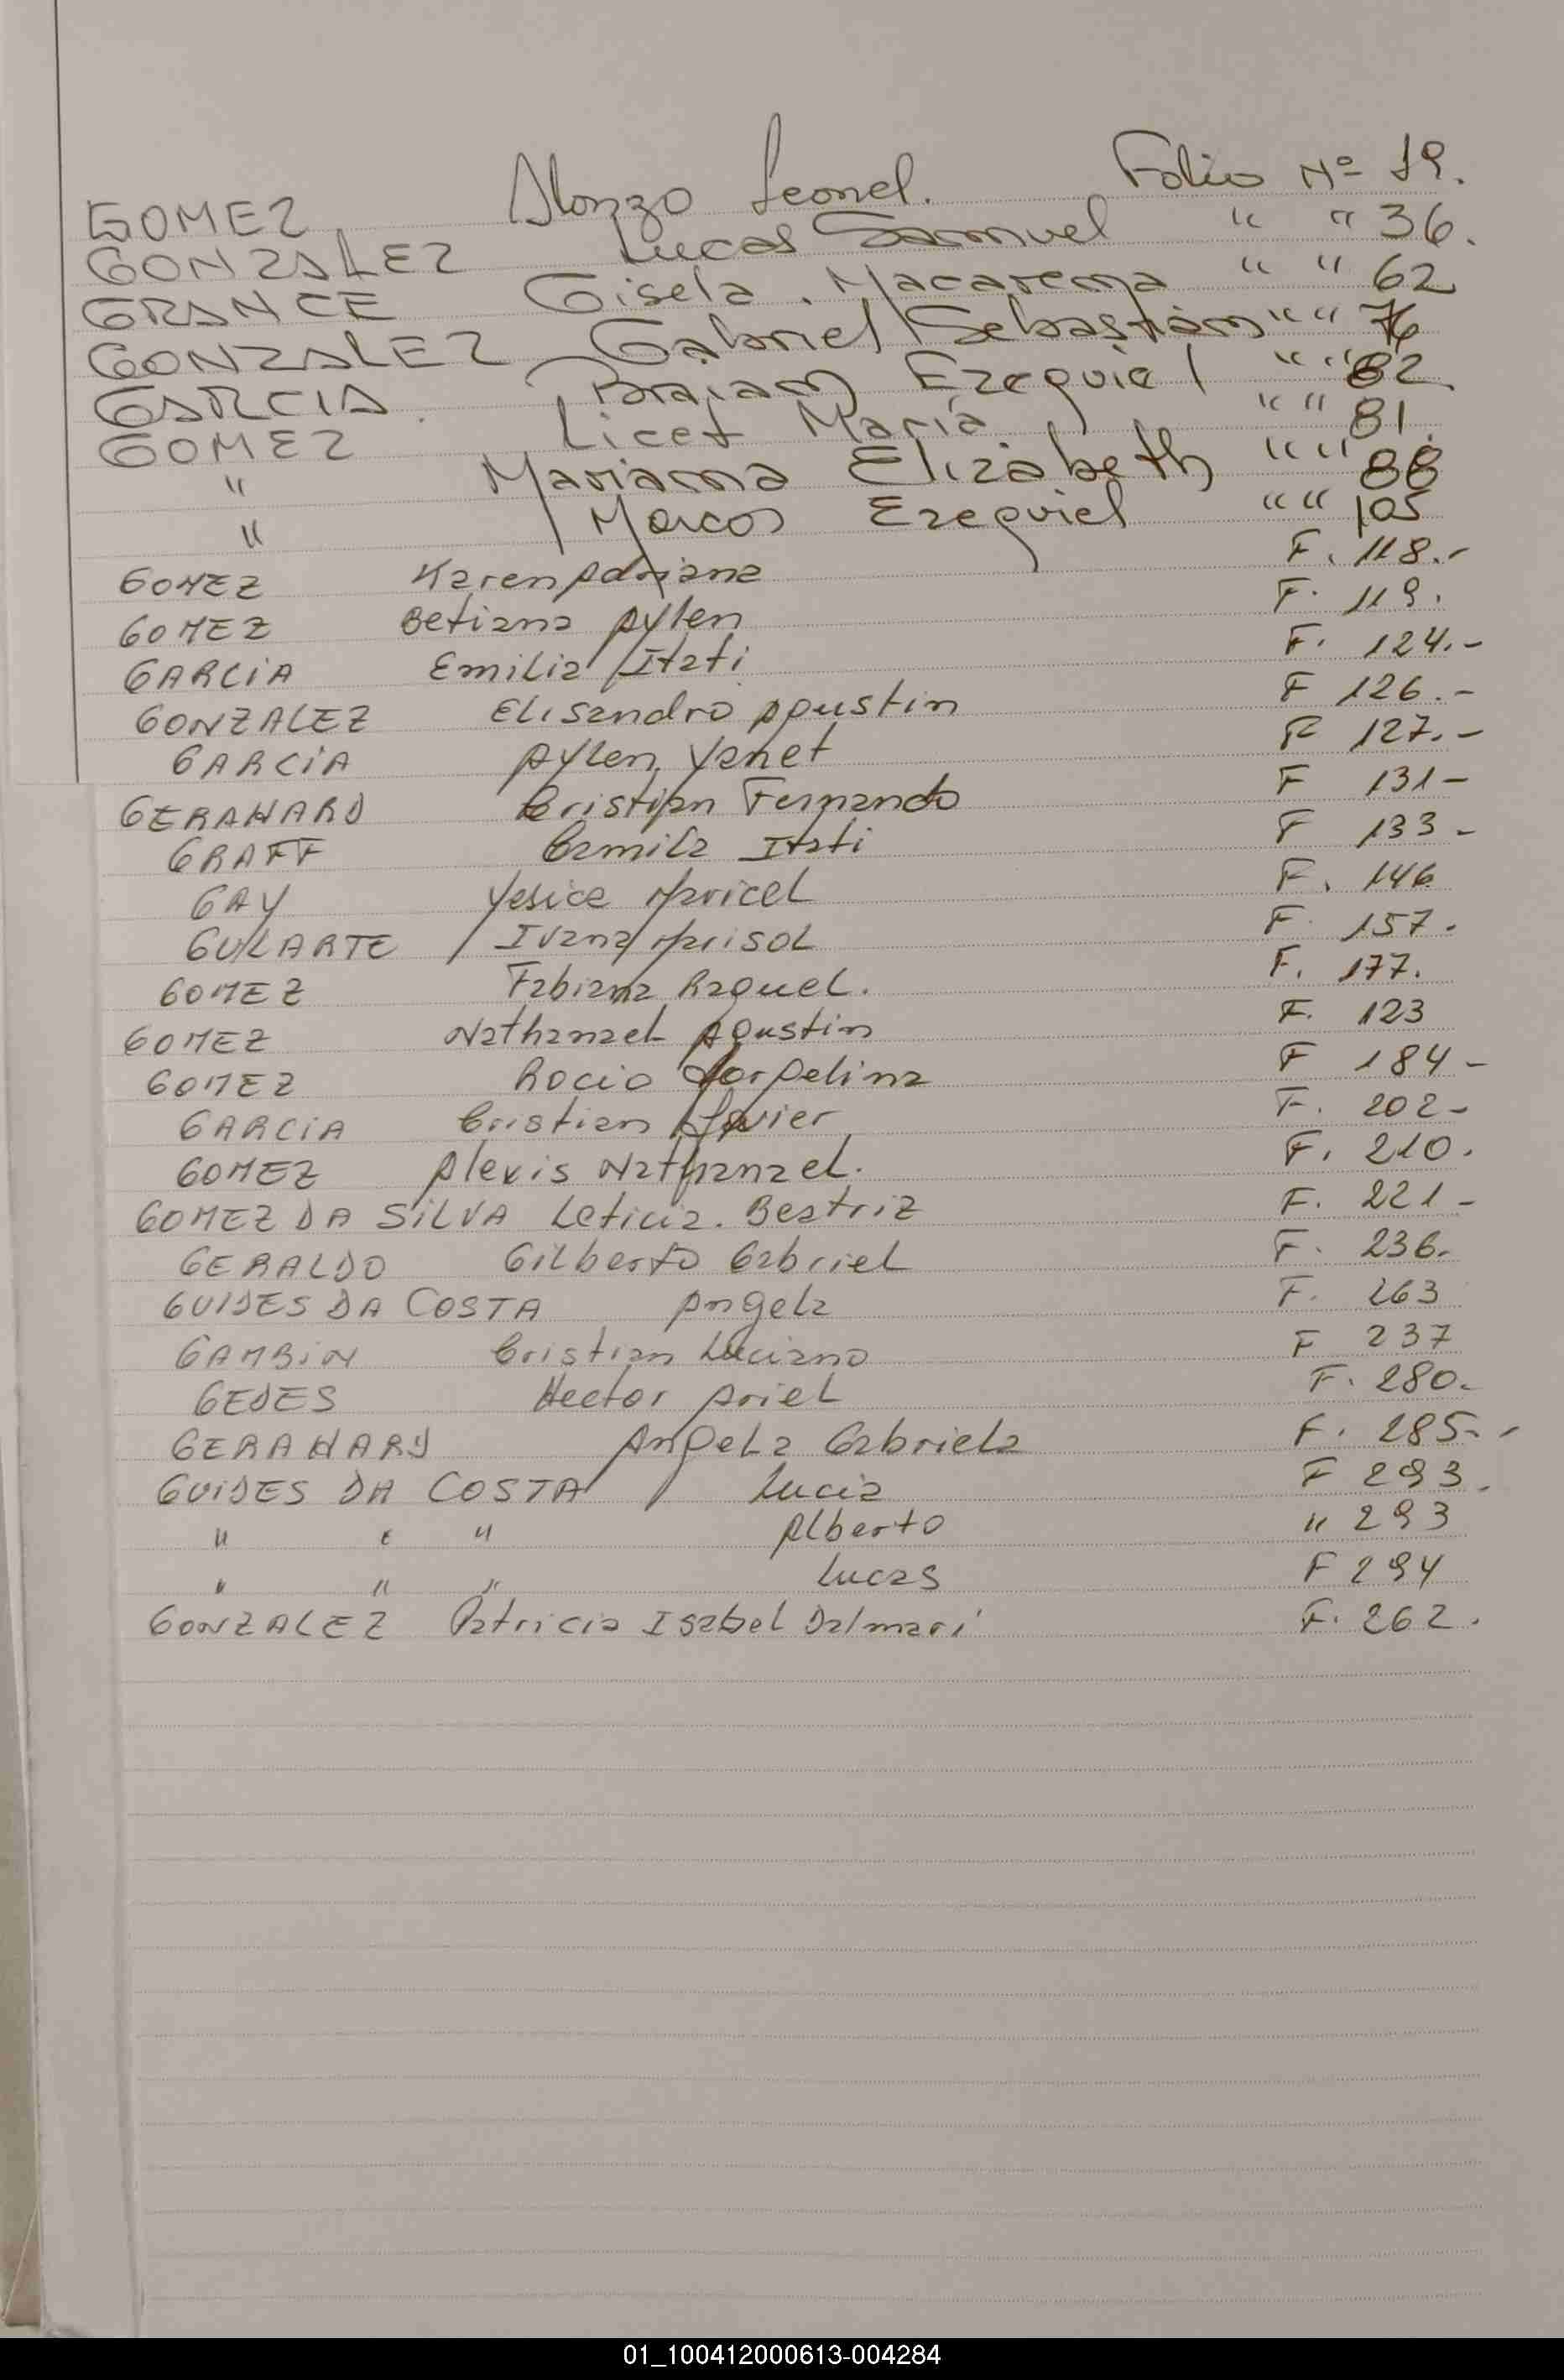 GOMEZ Alonzo Leonel. Folio Nº 19.
GONZALEZ Lucas Samuel " " 36.
GRANCE Gisela. Macarena " " 62
GONZALEZ Gabriel Sebastián " " 76
GARCIA. Braian Ezequiel " " 82.
GOMEZ Licet María. " " 81.
" Mariana Elizabeth " " 88
" Marcos Ezequiel " " 105
GOMEZ Karen Adriana F. 118.-
GOMEZ Betiana Aylen F. 119.
GARCiA Emilia Itati F. 124.-
GONZALEZ Elisandro Agustin F 126.-
GARCiA Aylen Yanet F 127.-
GERAHARD Cristian Fernando F 131-
GRAFF Camila Itati F 133-
GAY Yesica Maricel F. 146
GULARTE Ivana Marisol F. 157.
GOMEZ Fabiana Raquel. F. 177.
GOMEZ Nathanael Agustin F. 123
GOMEZ Rocio Jorgelina F 184-
GARCiA Cristian Javier F. 202-
GOMEZ Alexis Nathanael. F. 210.
GOMEZ DA SiLVA Leticia. Beatriz F. 221-
GERALDO Gilberto Gabriel F. 236.
GUIDES DA COSTA Angela F. 263
GAMBiN Cristian Luciano F 237
GEDES Hector Ariel F. 280.
GERAHARD Angela Gabriela F. 285.-
GUiDES DA COSTA Lucia F 293.
" " " Alberto " 293
" " " Lucas F 294
GONZALEZ Patricia Isabel Dalmari F. 262.
01_100412000613-004284